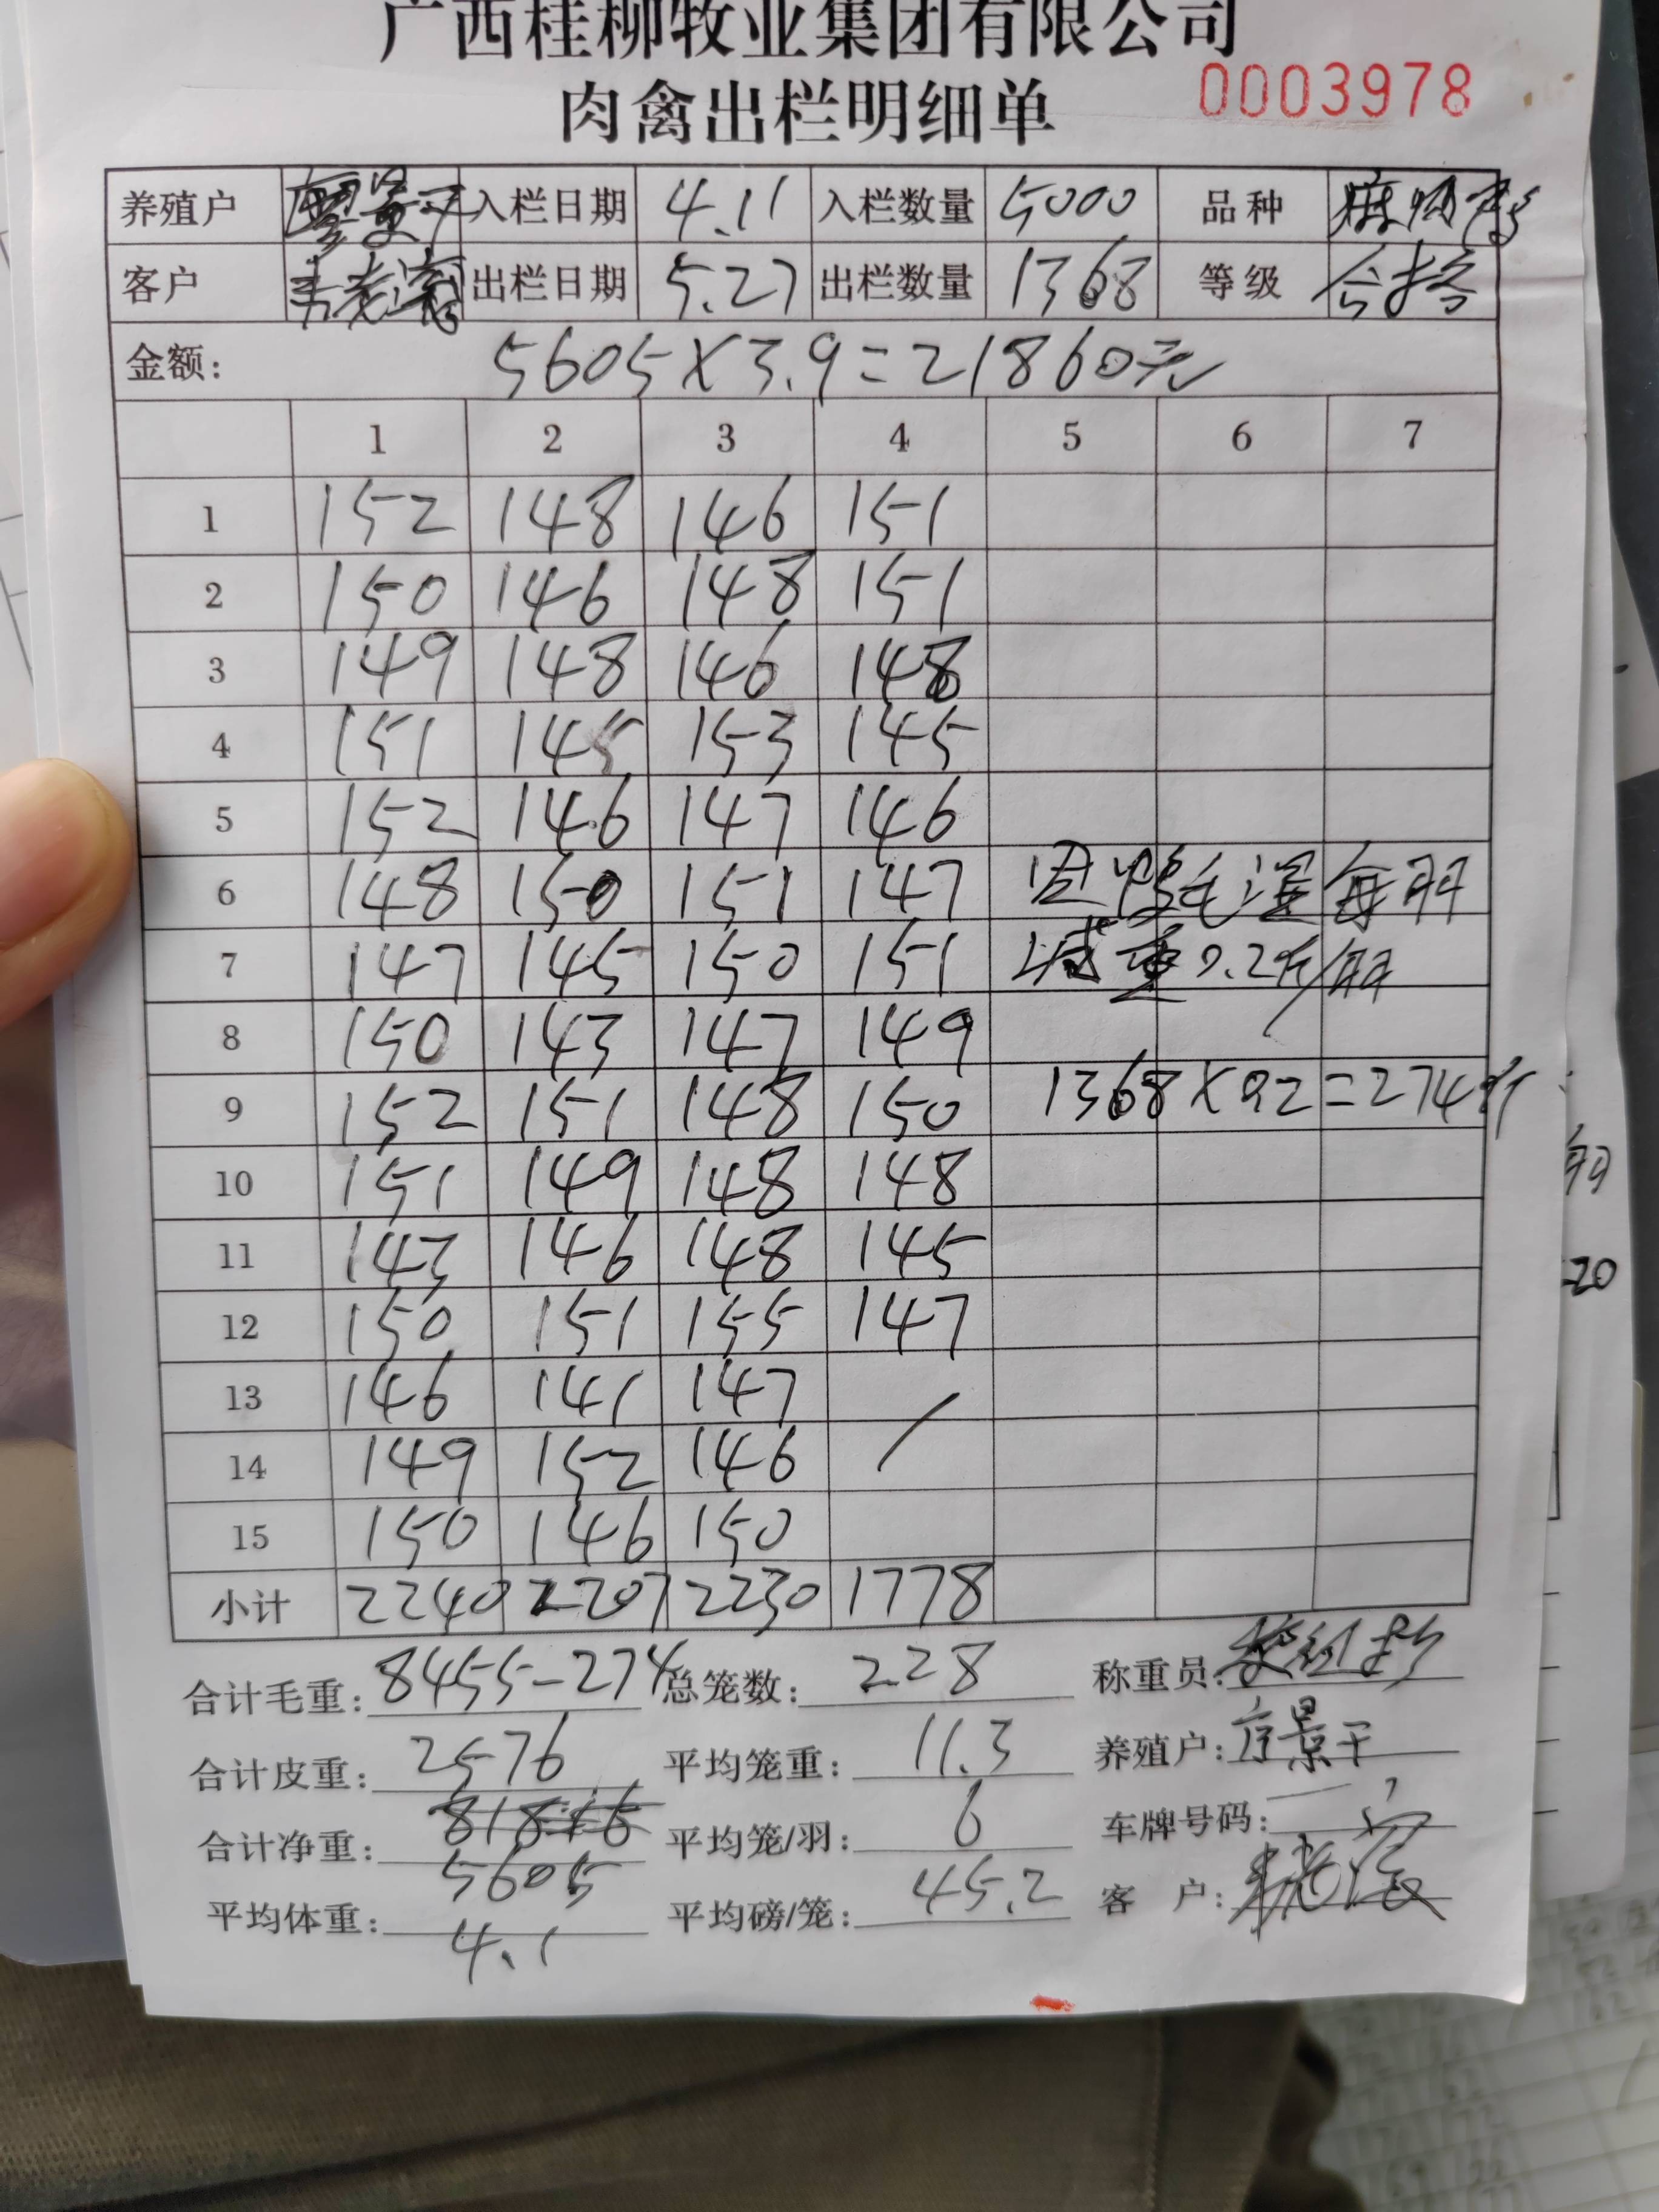 广西桂柳牧业集团有限公司
肉禽出栏明细单 0003978
养殖户 入栏日期 4.11 入栏数量 5000 品种
客户 出栏日期 5.27 出栏数量 1368 等级 合格
金额: 5605×3.9=21860元
1 2 3 4 5 6 7
1 152 148 146 151
2 150 146 148 151
3 149 148 146 148
4 151 145 153 145
5 152 146 147 146
6 148 150 151 147 因鸭毛湿每羽
7 147 145 150 151 减重0.2斤/羽
8 150 143 147 149
9 152 151 148 150 1368×0.2=274斤
10 151 149 148 148
11 143 146 148 145
12 150 151 155 147
13 146 141 147
14 149 152 146
15 150 146 150
小计 2240 2207 2230 1778
合计毛重: 8455-274 总笼数: 228 称重员:
合计皮重: 2576 平均笼重: 11.3 养殖户:
合计净重: 5605 平均笼/羽: 6 车牌号码:
平均体重: 4.1 平均磅/笼: 45.2 客 户: